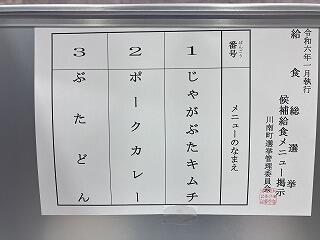 令和六年一月執行
給食総選挙
候補給食メニュー掲示
川南町選挙管理委員会
番号
ばんごう
メニューのなまえ
1
じゃがぶたキムチ
2
ポークカレー
3
ぶたどん